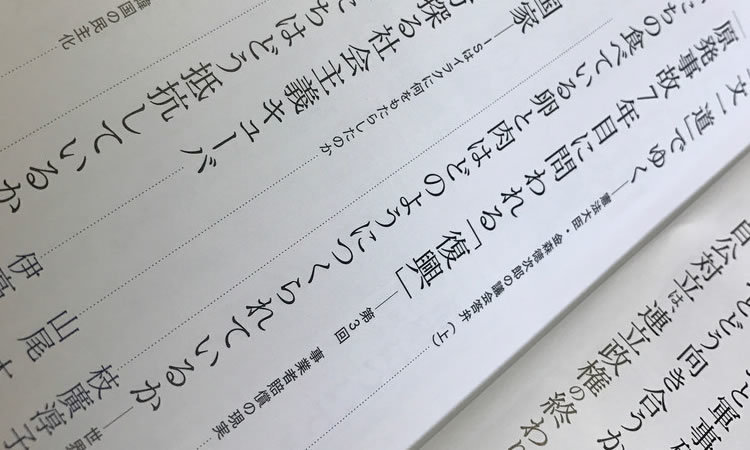 と軍事
とどう向き合うか
自公対立は、連立政権の終わ
文一道」でゆく——憲法大臣・金森徳次郎の議会答弁(上)
原発事故7年目に問われる「復興」——第3回 事業者賠償の現実
たちの食べている卵と肉はどのようにつくられているか——世界
枝廣淳子
国家——ISはイラクに何をもたらしたのか
山尾
探る社会主義キューバ
伊
ちはどう抵抗しているか
韓国の民主化